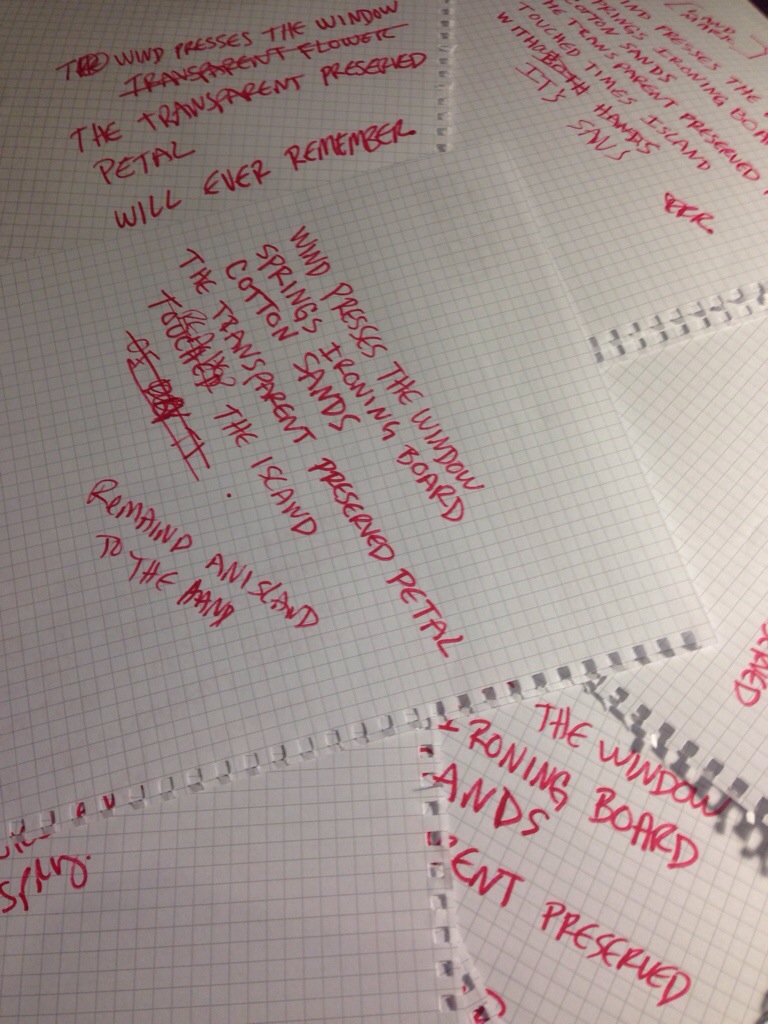 WIND PRESSES THE WINDOW
TRANSPARENT FLOWER
THE TRANSPARENT PRESERVED
PETAL
WILL EVER REMEMBER
IND PRESSES THE
PRINGS IRONING BOA
OTTON SANDS
HE TRANSPARENT PRESERVED
TOUCHED TIMES ISLAND
WITH HANDS
ITS
WIND PRESSES THE WINDOW
SPRINGS IRONING BOARD
COTTON SANDS
THE TRANSPARENT PRESERVED PETAL
TOUCHED THE ISLAND
OF IT
REMAIND AN ISLAND
TO THE HAND
THE WINDOW
IRONING BOARD
ANDS
ENT PRESERVED